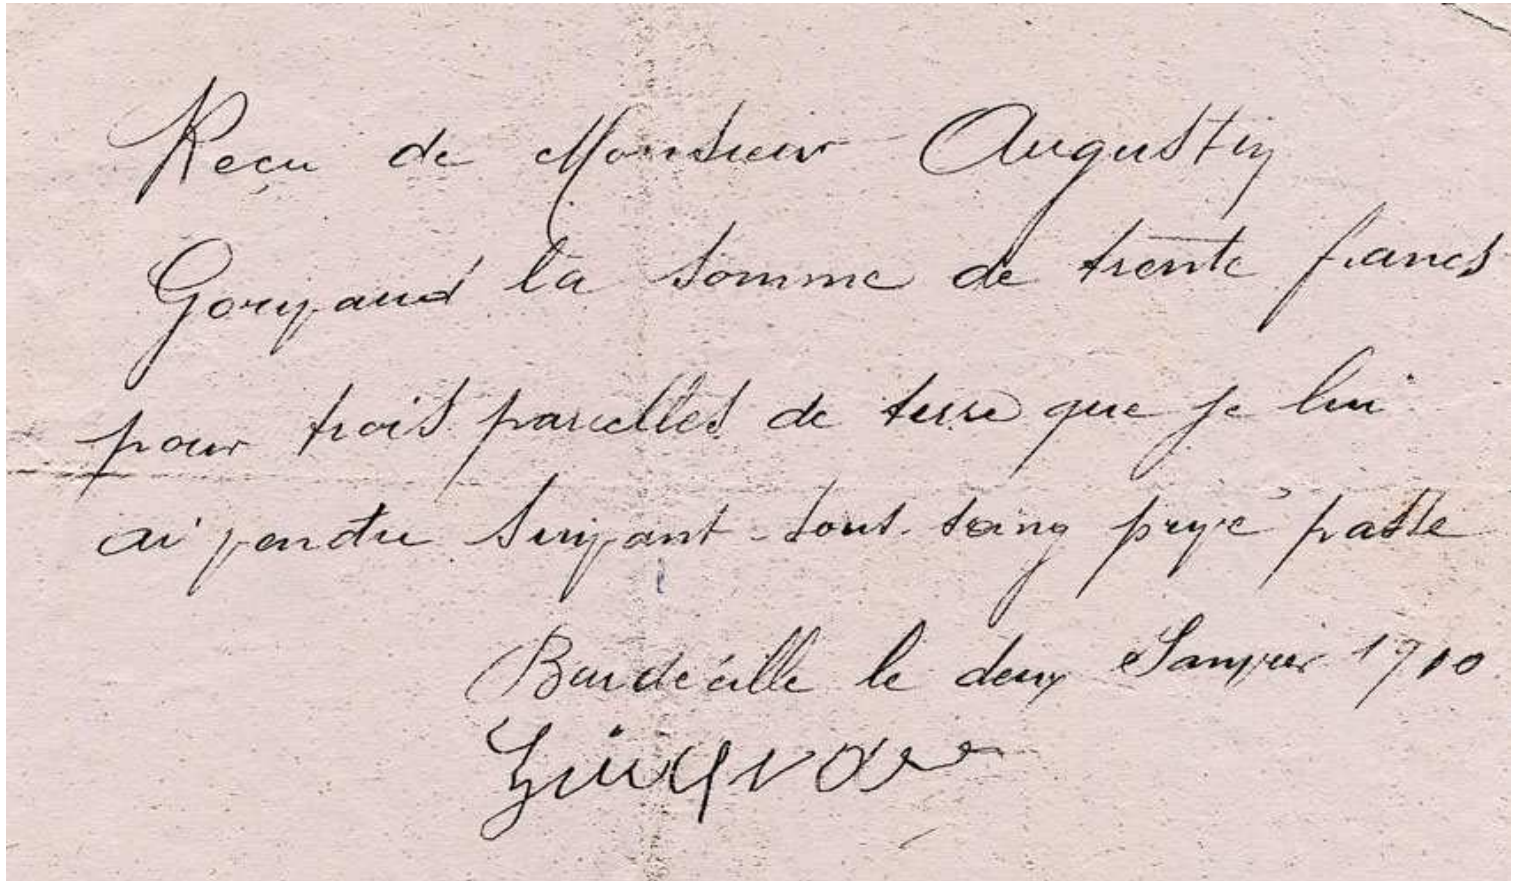 Reçu de Monsieur Augustin
la somme de trente francs
pour trois parcelles de terre que je lui
ai vendu suivant sous-seing privé passe
le deux Janvier 1910